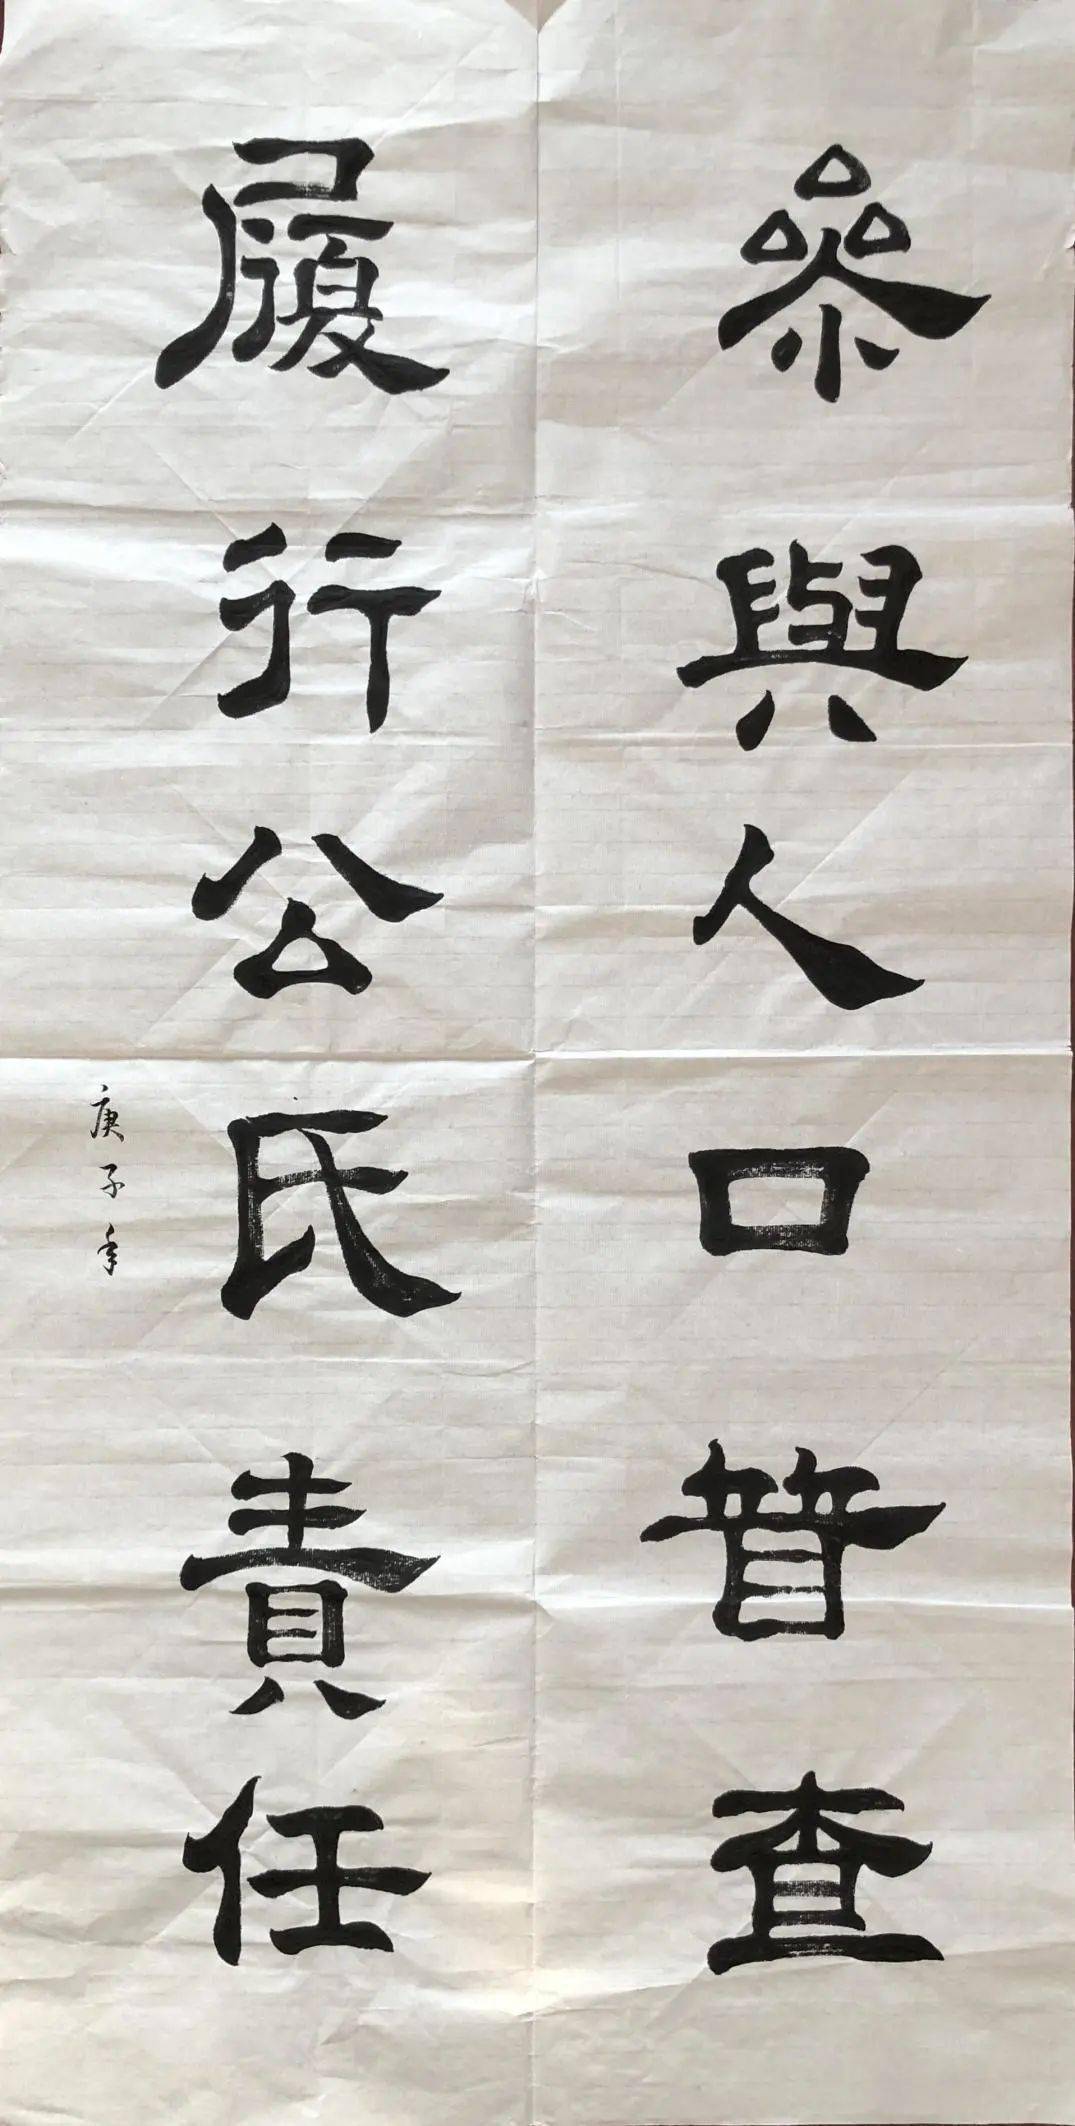 參與人口普查
履行公民責任
庚子年